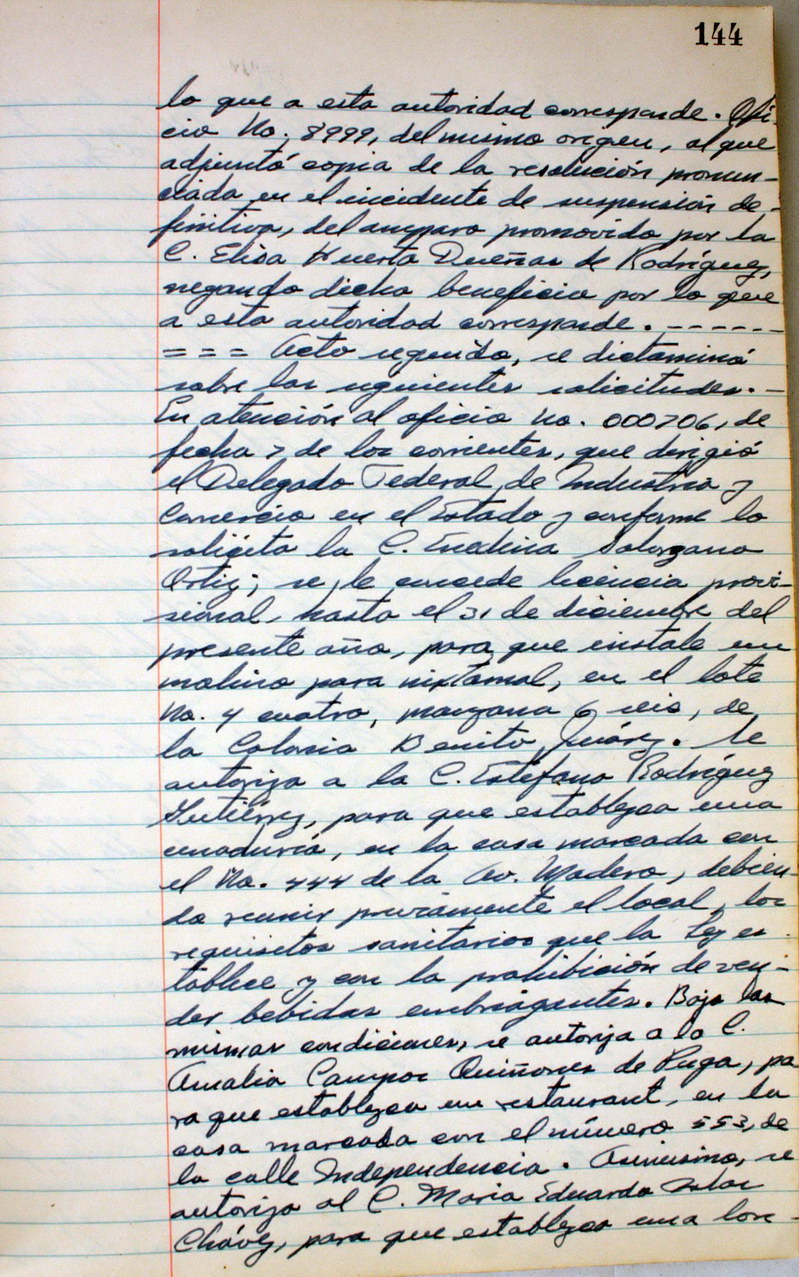 144
lo que a esta autoridad corresponde. Ofi-
cio No. 8999, del mismo origen, al que
adjuntó copia de la resolución pronun-
ciada en el incidente de suspensión de-
finitiva, del amparo promovido por la
C. Elisa Huerta Dueñas de Rodríguez,
negando dicho beneficio por lo que
a esta autoridad corresponde. - - - - - -
= = = Acto seguido, se dictaminó
sobre las siguientes solicitudes. -
En atención al oficio No. 000706, de
fecha 7 de los corrientes, que dirigió
el Delegado Federal de Industria y
Comercio en el Estado y conforme lo
solicita la C. Enedina Solorzano
Ortiz; se le concede licencia provi-
sional, hasta el 31 de diciembre del
presente año, para que instale un
molino para nixtamal, en el lote
No. 4 cuatro, manzana 6 seis, de
la Colonia Benito Juárez. Se
autoriza a la C. Estéfana Rodríguez
Gutiérrez, para que establezca una
cenaduría, en la casa marcada con
el No. 444 de la Av. Madero, debien-
do reunir previamente el local, los
requisitos sanitarios que la Ley es-
tablece y con la prohibición de ven-
der bebidas embriagantes. Bajo las
mismas condiciones, se autoriza a la C.
Amalia Campos Quiñones de Puga, pa
ra que establezca un restaurant, en la
casa marcada con el número 553, de
la calle Independencia. Asimismo, se
autoriza al C. Maria Eduardo Salas
Chávez, para que establezca una lon-